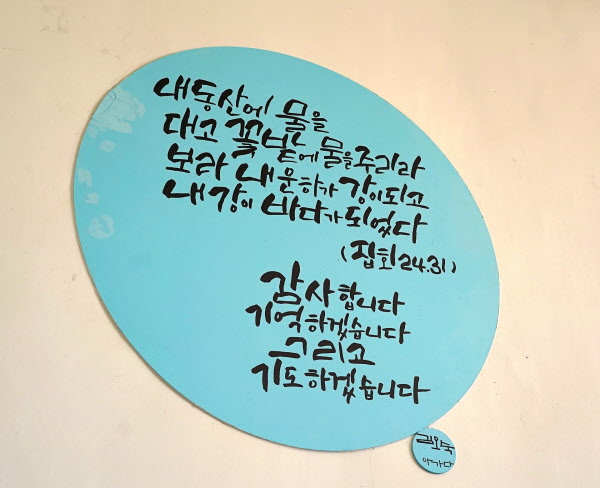 내 동산에 물을
대고 꽃밭에 물을 주리라
보라 내 운하가 강이 되고
내 강이 바다가 되었다
(집회 24.31)
감사합니다
기억하겠습니다
그리고
기도하겠습니다
아가다